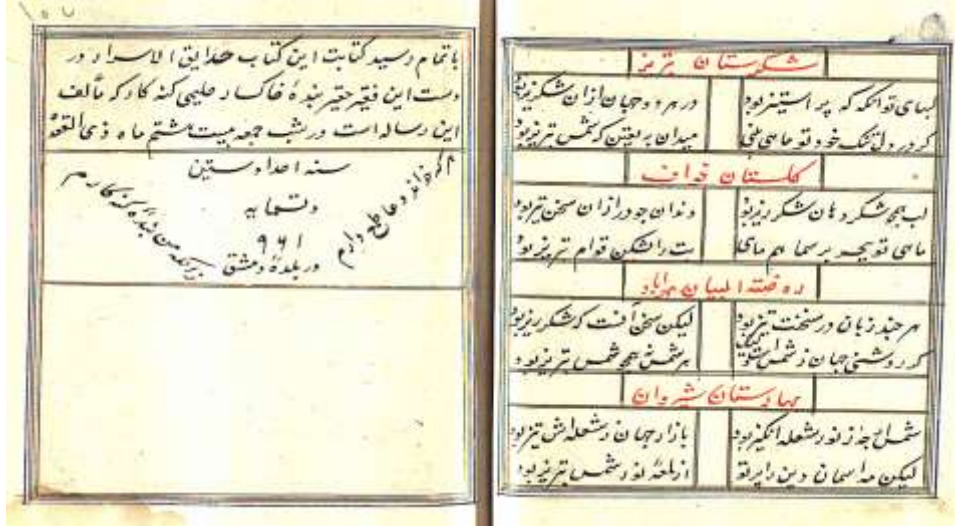 شکرستان تبریز
لبهای تو آنکه که پر استیز بود در هر دو جهان از آن شکر ریز بود
گر در دل تنگ خود تو ماهی میدان بیقین که شمس تبریز بود
گلستان خواف
لب همچو شکر دهان شکر ریز بود دندان چو در از آن سخن تیز بود
ماهی تو بر سما هم ماهی قوام تبریز بود
روضة البیان
هر چند زبان در سخنت تیز بود لیکن سخن آنست که شکر ریز بود
گر روشنی جهان ز شمس است بر شمس همچو شمس تبریز بود
بهارستان شیروان
شمس ار چه ز نور شعله انگیز بود بازار جهان ز شعله اش تیز بود
لیکن مه آسمان دین را پرتو از لمعه نور شمس تبریز بود
باتمام رسید کتابت این کتاب حدایق الاسرار در
دست این فقیر حقیر بنده خاکسار حلیمی کنه کار که مألف
این رساله است در شب جمعه بیست هشتم ماه ذی القعده
سنه احدا وستین
وتسمایه
۹۶۱
در بلدهٔ دمشق
هر که خواند دعا طمع دارم
زانکه من بنده گنه کارم